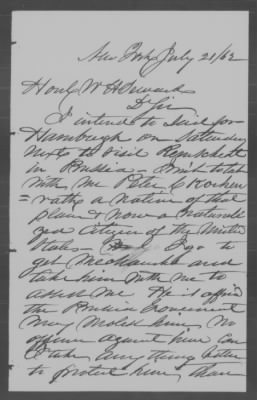 New York July 21/62
Honl W H Seward
D Sir
I intend to sail for
Hamburgh on Saturday
next to visit
in Prussia I wish to take
with me Peter C
= rath a native of that
place & now a naturali
zed citizen of the United
States – I go to
get Mechanics and
take him with me to
assist me. He is afraid
the Prussian Government
may molest him, No
offence against him Can
I take any thing better
to protect him, than